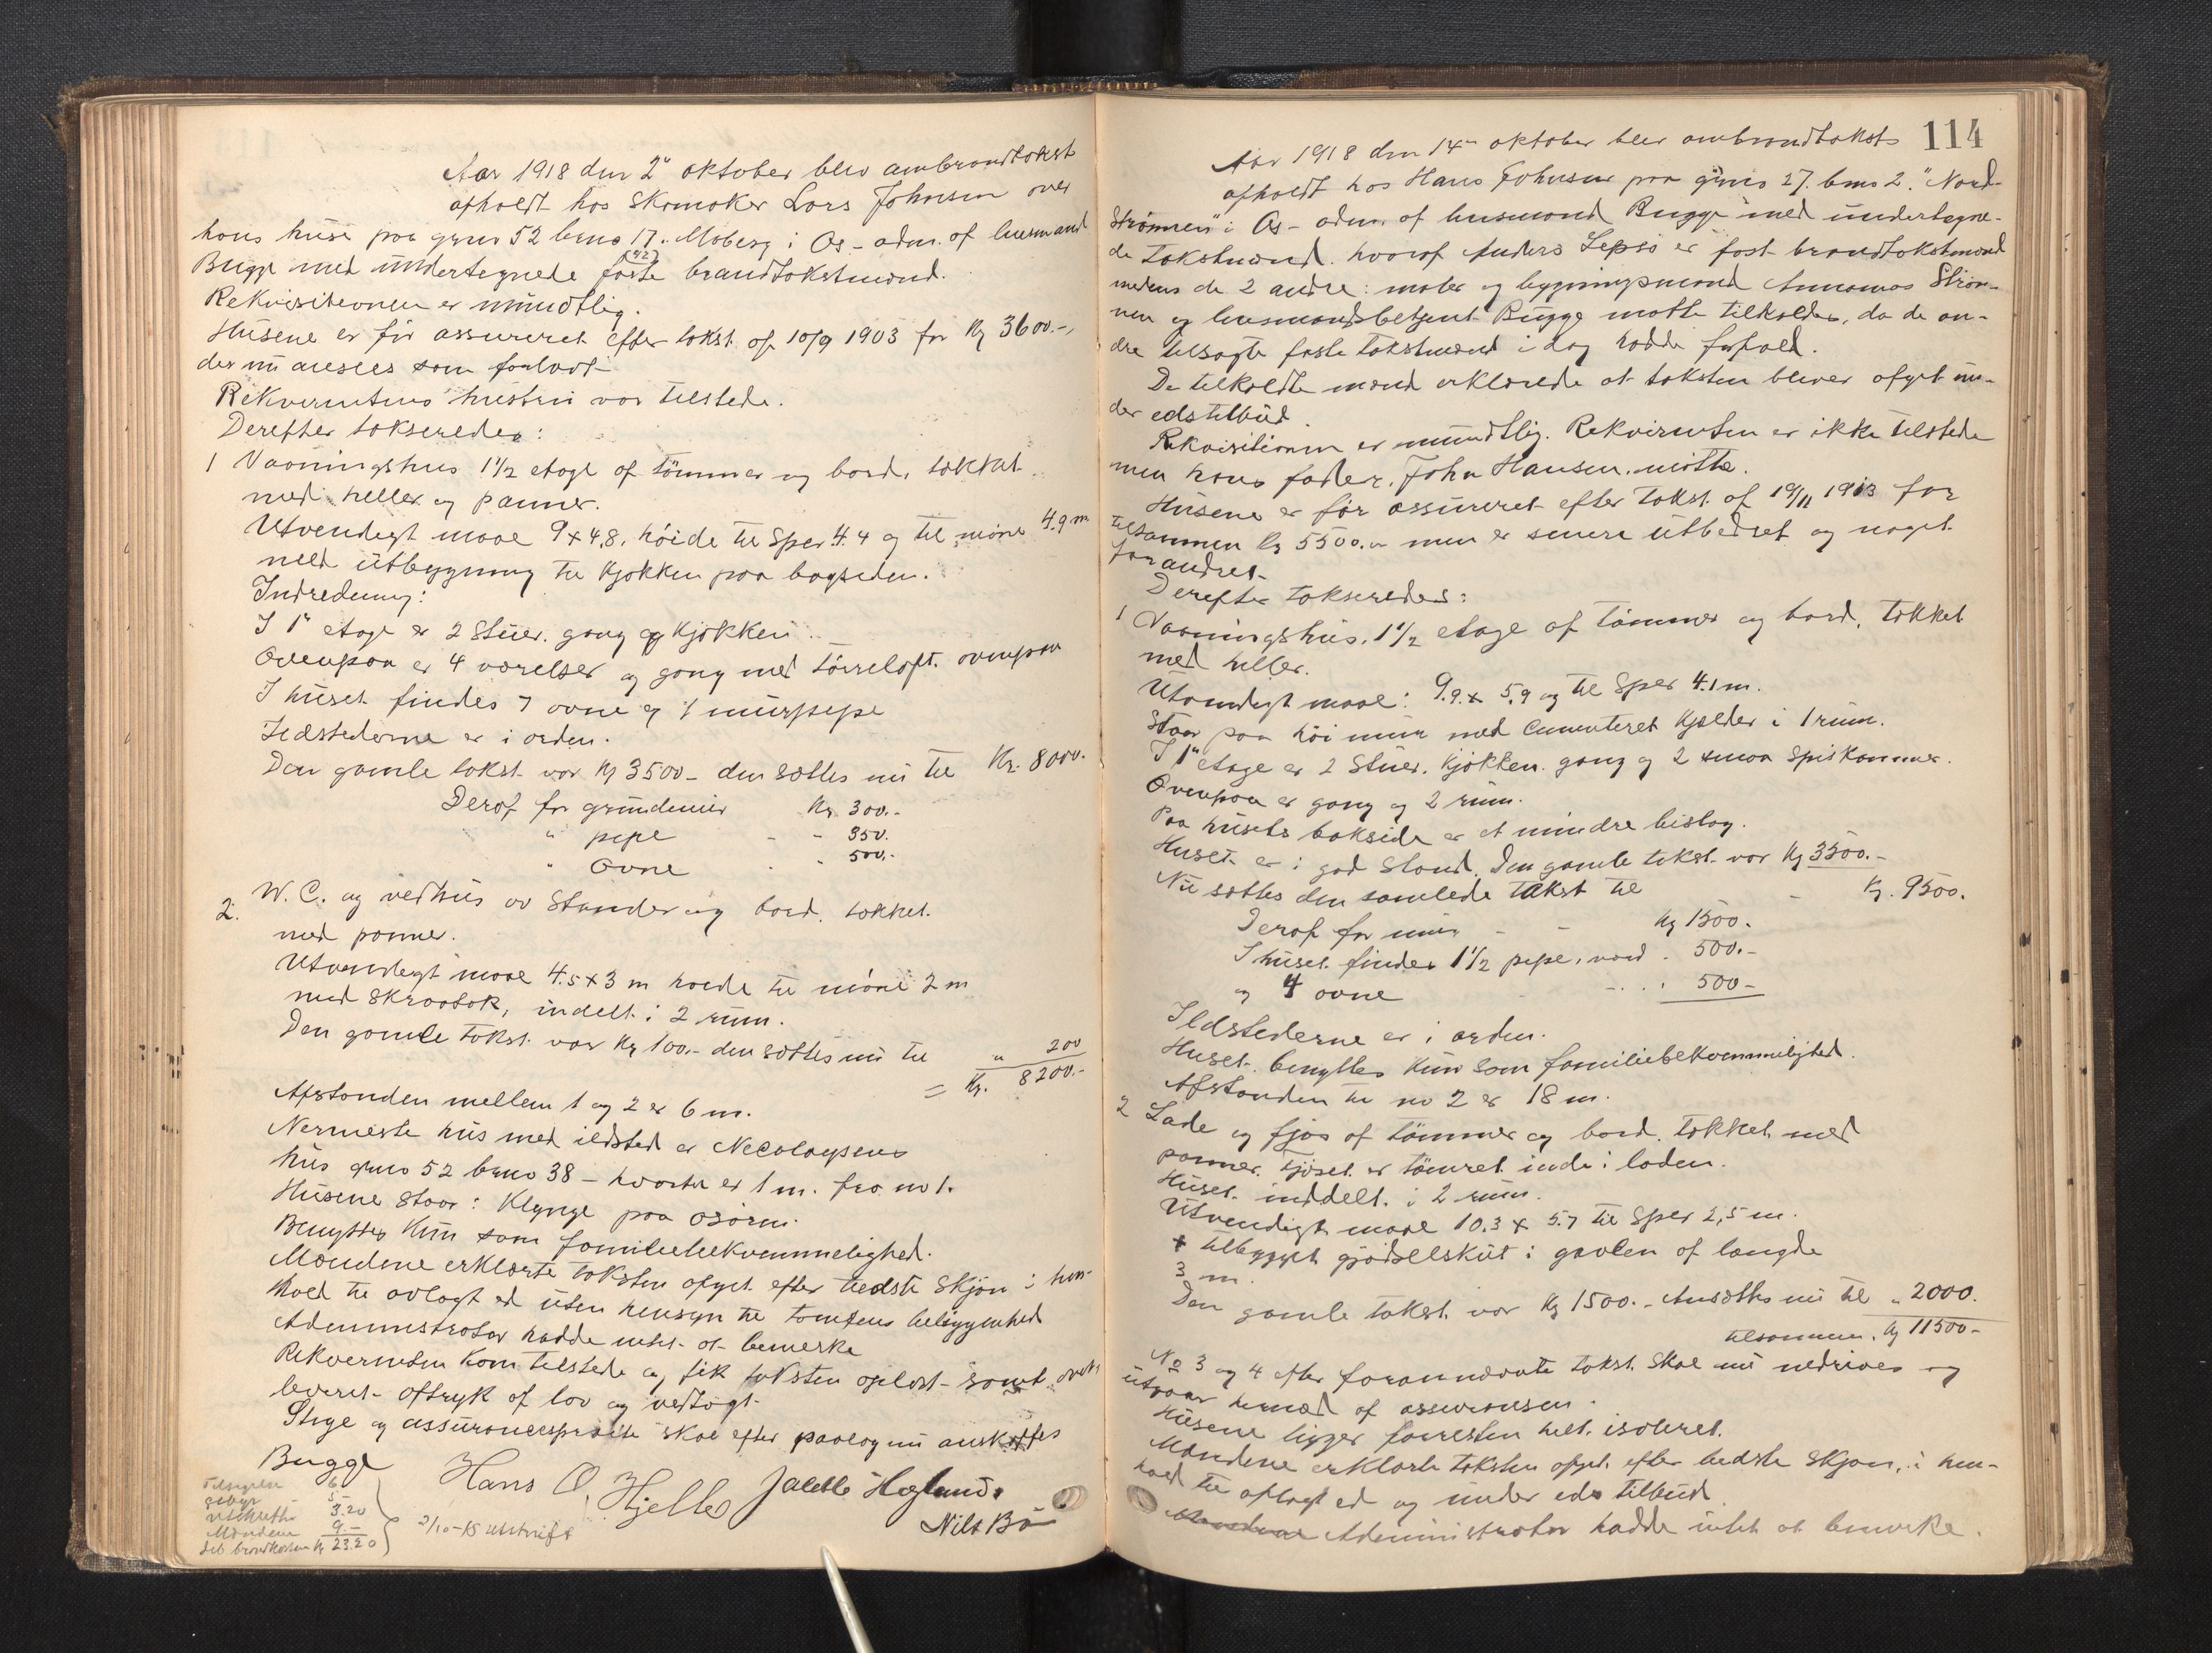 Aar 1918 den 2" oktober blev ombrandtakst
afholdt hos Skomaker Lars Johnsen over
hans huse paa grno 52 brno 17. Moberg i Os - adm. af lensmand
Bugge med undertegnede faste brandtakstmænd.
Rekvisitionen er mundtlig.
Husene er før assureret efter takst af 10/9 1903 for Kr 3600.-,
der nu ansees som forladt -
Rekvirentens hustru var tilstede.
Derefter takseredes:
1 Vaaningshus 1 1/2 etage af tømmer og bord, tækket
med heller og panner.
Utvendigt maal 9 x 4,8, høide til Sper 4.4 og til møne 4.9 m
med utbygning til Kjøkken paa bagsiden.
Indredning:
I 1" etage er 2 Stuer, gang og Kjøkken.
Ovenpaa er 4 værelser og gang med tørreloft. ovenpaa
I huset findes 7 ovne og 1 murpipe
Ildstederne er i orden.
Den gamle takst var Kr 3500 - den sættes nu til Kr. 8000.
Deraf for grundmur Kr. 300.-
" pipe - - 350.
" Ovne " 500.-
2. W.C. og vedhus av Stender og bord, tækket
med panner.
Utvendigt maal 4.5 x 3 m høide til møne 2 m
med Skraatak, inddelt i 2 rum.
Den gamle takst var Kr 100.- den sættes nu til " 200
= Kr. 8200.-
Afstanden mellem 1 og 2 er 6 m.
Nermeste hus med ildsted er Nicolaysens
hus grno 52 brno 38 - hvortil er 1 m. fra no 1.
Husene staar i Klynge paa osøren.
Benyttes Kun som familiebekvemmelighed.
Mændene erklærte taksten afgit efter bedste Skjøn i hen-
hold til avlagt ed uten hensyn til tomtens beliggenhed
Administrator hadde intet at bemerke
Rekvirenten kom tilstede og fik taksten oplæst - samt over-
leveret aftryk af lov og vedtægt.
Stige og assurancesprøite skal efter paalæg nu anskaffes
Bugge
Hans O. Hjelle Jacob Hegland.
Nils Bø
gebyr 5-
Utskrift 3.20
Mændene 9.-
Kr 23.20
2/10-18 Utskrift
114
Aar 1918 den 14" oktober blev ombrandtakst
afholdt hos Hans Johnsen paa grno 27. brno 2. "Nord-
Strønnen" i Os - adm. af lensmand Bugge med undertegne-
de takstmænd. hvoraf Anders Lepsø er fast brandtakstmand
medens de 2 andre: maler og bygningsmand Annanias Strøn-
nen og lensmandsbetjent Bugge maatte tilkaldes, da de an-
dre tilsagte faste takstmænd i dag hadde forfald.
De tilkaldte mænd erklærede at taksten bliver afgit un-
der edstilbud.
Rekvisitionen er mundtlig. Rekvirenten er ikke tilstede
men hans fader, John Hansen. møtte.
Husene er før assureret efter takst af 19/11 1913 for
tilsammen Kr 5500.- men er senere utbedret og noget
forandret -
Derefter takseredes:
1 Vaaningshus. 1 1/2 etage af tømmer og bord, tækket
med heller.
Utvendigt maal: 9.9 x 5.9 og til Sper 4.1 m.
Staar paa høi mur med Cementeret Kjælder i 1 rum.
I 1" etage er 2 Stuer, Kjøkken, gang og 2 smaa Spiskammer.
Ovenpaa er gang og 2 rum.
Paa husets bakside er et mindre bislag.
Huset er i god Stand. Den gamle takst var Kr 3500.-
Nu sættes den samlede takst til - Kr. 9500.
Deraf for mur - - Kr 1500.
I huset findes 1 1/2 pipe, værd . 500.-
og 4 ovne - . . . 500 -
Ildstederne er i orden.
Huset benyttes kun som familiebekvemmelighed.
Afstanden til no 2 er 18 m.
2 Lade og fjøs af tømmer og bord, tækket med
panner. Fjøset er tømret inde i laden.
Huset inddelt i 2 rum.
Utvendigt maal 10.3 x 5.7 til Sper 2,5 m.
+ tilbygget gjødselskut i gavlen af længde
3 m.
Den gamle takst var Kr 1500.- Ansættes nu til " 2000.
tilsammen. Kr 11500 -
No 3 og 4 efter forannævnte takst skal nu nedrives og
utgaar hermed af assuransen.
Husene ligger forresten helt isoleret.
Mændene erklærte taksten afgit efter bedste Skjøn, i hen-
hold til aflagt ed og under eds tilbud.
Administrator hadde intet at bemerke.